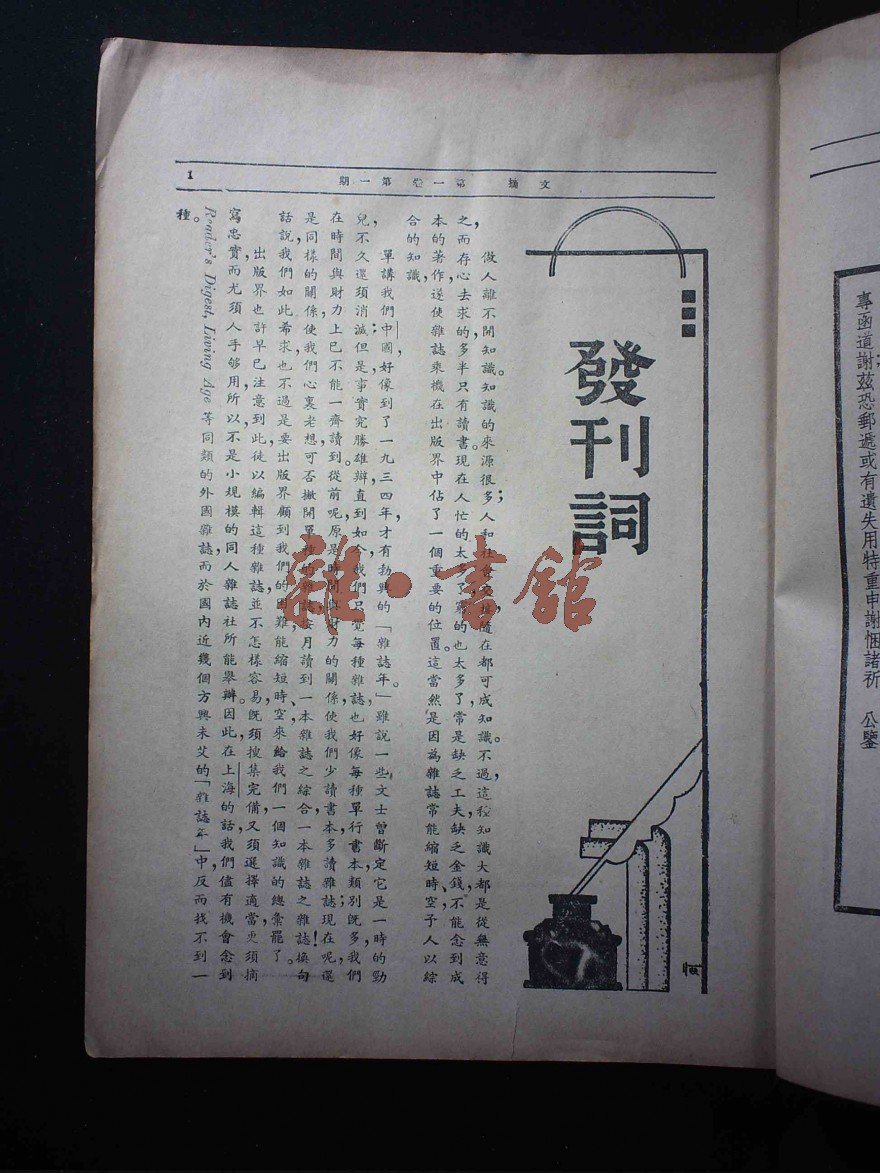 文摘 第一卷 第一期
1
發刊詞
做人離不開知識。知識的來源很多；人和社會交接隨在都可成知識。不過，這種知識大都是從無意得
之，而存心去求的，多半只有讀書。現在人忙的太多了，窮的也太多了，常是缺乏工夫，缺乏金錢，不能念到成
本的著作，遂使雜誌乘機在出版界中佔了一個重要的位置。這當然是因為雜誌常能縮短時、空，予人以綜
合的知識。
單講我們中國，好像到了一九三四年，才有勃興的「雜誌年」。雖說一些文士曾斷定它是一時的勁
兒，不久還須消滅；但是事實究勝雄辯，直到如今，我們只覺每種雜誌，也好像每種單行書本，類別旣多，我們
在時間與財力上已不能一齊讀到。從前呢，原是時間與財力的關係，使我們少讀書本，多讀雜誌；現在呢，還
是同樣的關係，使我們心裏老想，可否撇開單種的雜誌，按月讀到一本雜誌之綜合，一本雜誌之雜誌！換句
話說，我們如此希求，也不過是要出版界顧到我們的困難，能縮短時、空，來給我們一個知識的總彙罷了。
出版界也許早已注意到此，徒以編輯這種雜誌，並不怎樣容易，旣須搜集完備，又須選擇適當，更須摘
寫忠實，而尤須人手够用，所以不是小規模的同人雜誌社所能舉辦。因此，在上海的話，我們儘有機會念到
Reader's Digest, Living Age 等同類的外國雜誌，而於國內近幾個方興未艾的「雜誌年」中，反而找不到一
種。
專函道謝茲恐郵遞或有遺失用特重申謝悃諸祈 公鑒
雜·書館